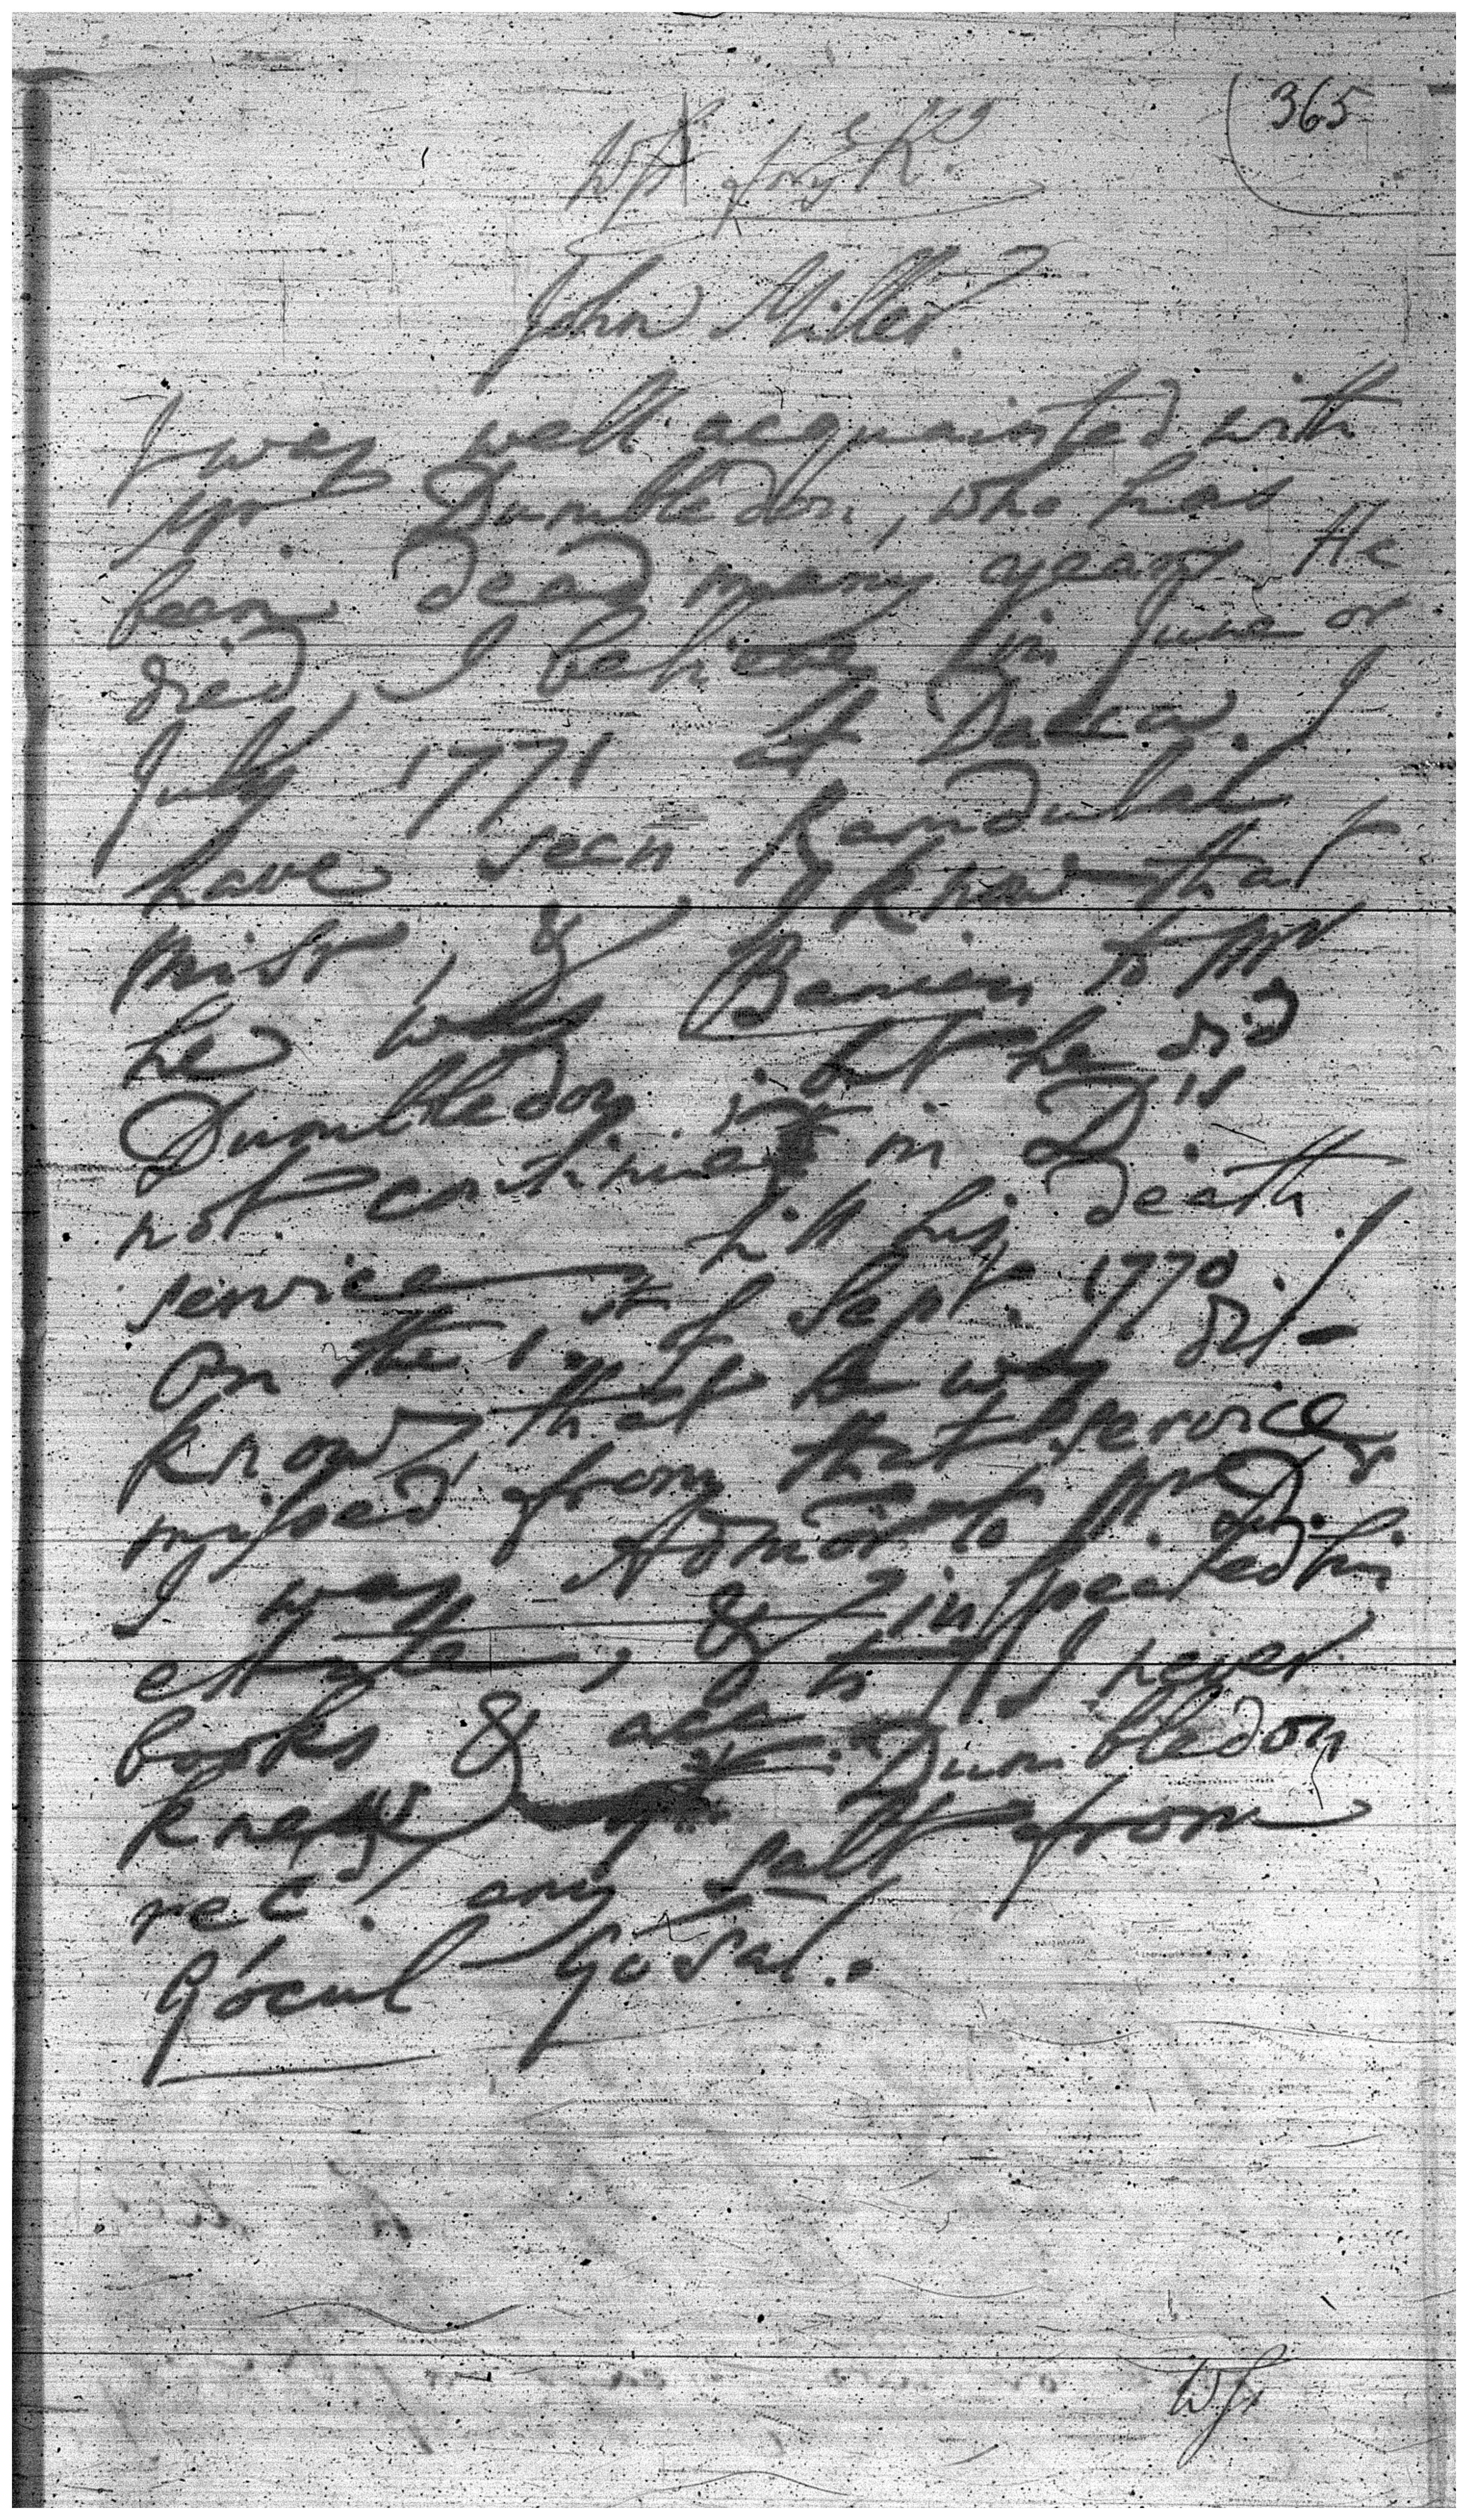 365
Wss for ye K.
John Miller.
I was well acquainted with
Mr. Dumbledon, who has
been dead many years. He
died, I believe, in June or
July 1771 at Dacca. I
have seen Randulal
Mistr, & I know that
he was Banian to Mr
Dumbledon; but he did
not continue in D.'s
service till his death.
On the 1st of Sept. 1770. I
know that he was dis-
missed from that service
I was Admor. to Mr. D.'s
estate, & inspected his
books & accts. I never
knew Dumbledon
recd. any salt from
Gócul Gosal.
Ws